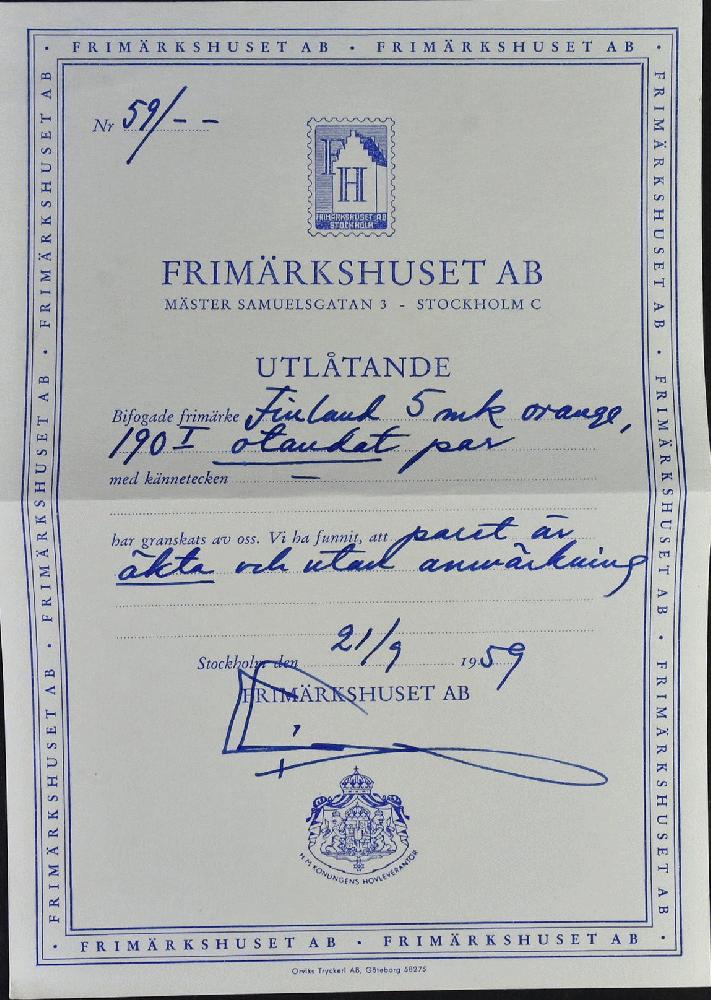 · FRIMÄRKSHUSET AB · FRIMÄRKSHUSET AB ·
FRIMÄRKSHUSET AB · FRIMÄRKSHUSET AB · FRIMÄRKSHUSET AB
FRIMÄRKSHUSET AB · FRIMÄRKSHUSET AB · FRIMÄRKSHUSET AB
Nr 59/--
F H
FRIMÄRKSHUSET AB
STOCKHOLM
FRIMÄRKSHUSET AB
MÄSTER SAMUELSGATAN 3 - STOCKHOLM C
UTLÅTANDE
Bifogade frimärke Finland 5 mk orange,
190 I otandat par
med kännetecken —
har granskats av oss. Vi ha funnit, att paret är
äkta och utan anmärkning
Stockholm den 21/9 1959
FRIMÄRKSHUSET AB
H.M. KONUNGENS HOVLEVERANTÖR
· FRIMÄRKSHUSET AB · FRIMÄRKSHUSET AB ·
Orviks Tryckeri AB, Göteborg 58275